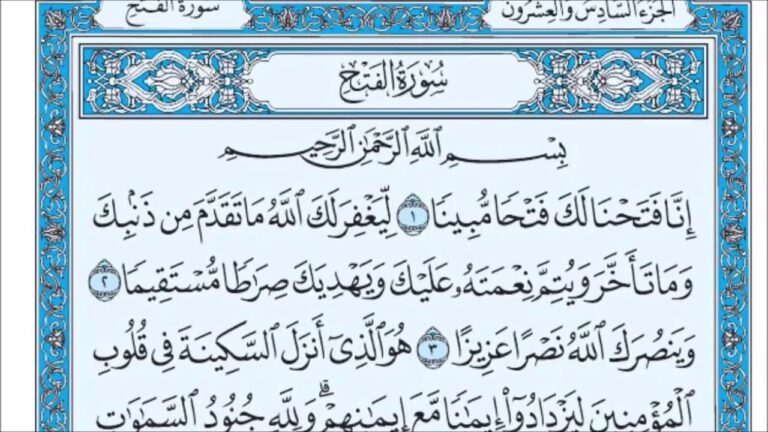 الجزء السادس والعشرون
سورة الفتح
سُورَةُ الفَتْحِ
بِسْمِ اللَّهِ الرَّحْمَٰنِ الرَّحِيمِ
إِنَّا فَتَحْنَا لَكَ فَتْحًا مُّبِينًا ١ لِّيَغْفِرَ لَكَ اللَّهُ مَا تَقَدَّمَ مِن ذَنۢبِكَ
وَمَا تَأَخَّرَ وَيُتِمَّ نِعْمَتَهُۥ عَلَيْكَ وَيَهْدِيَكَ صِرَاطًا مُّسْتَقِيمًا ٢
وَيَنصُرَكَ اللَّهُ نَصْرًا عَزِيزًا ٣ هُوَ الَّذِىٓ أَنزَلَ السَّكِينَةَ فِى قُلُوبِ
الْمُؤْمِنِينَ لِيَزْدَادُوٓا۟ إِيمَٰنًا مَّعَ إِيمَٰنِهِمْ ۗ وَلِلَّهِ جُنُودُ السَّمَٰوَٰتِ